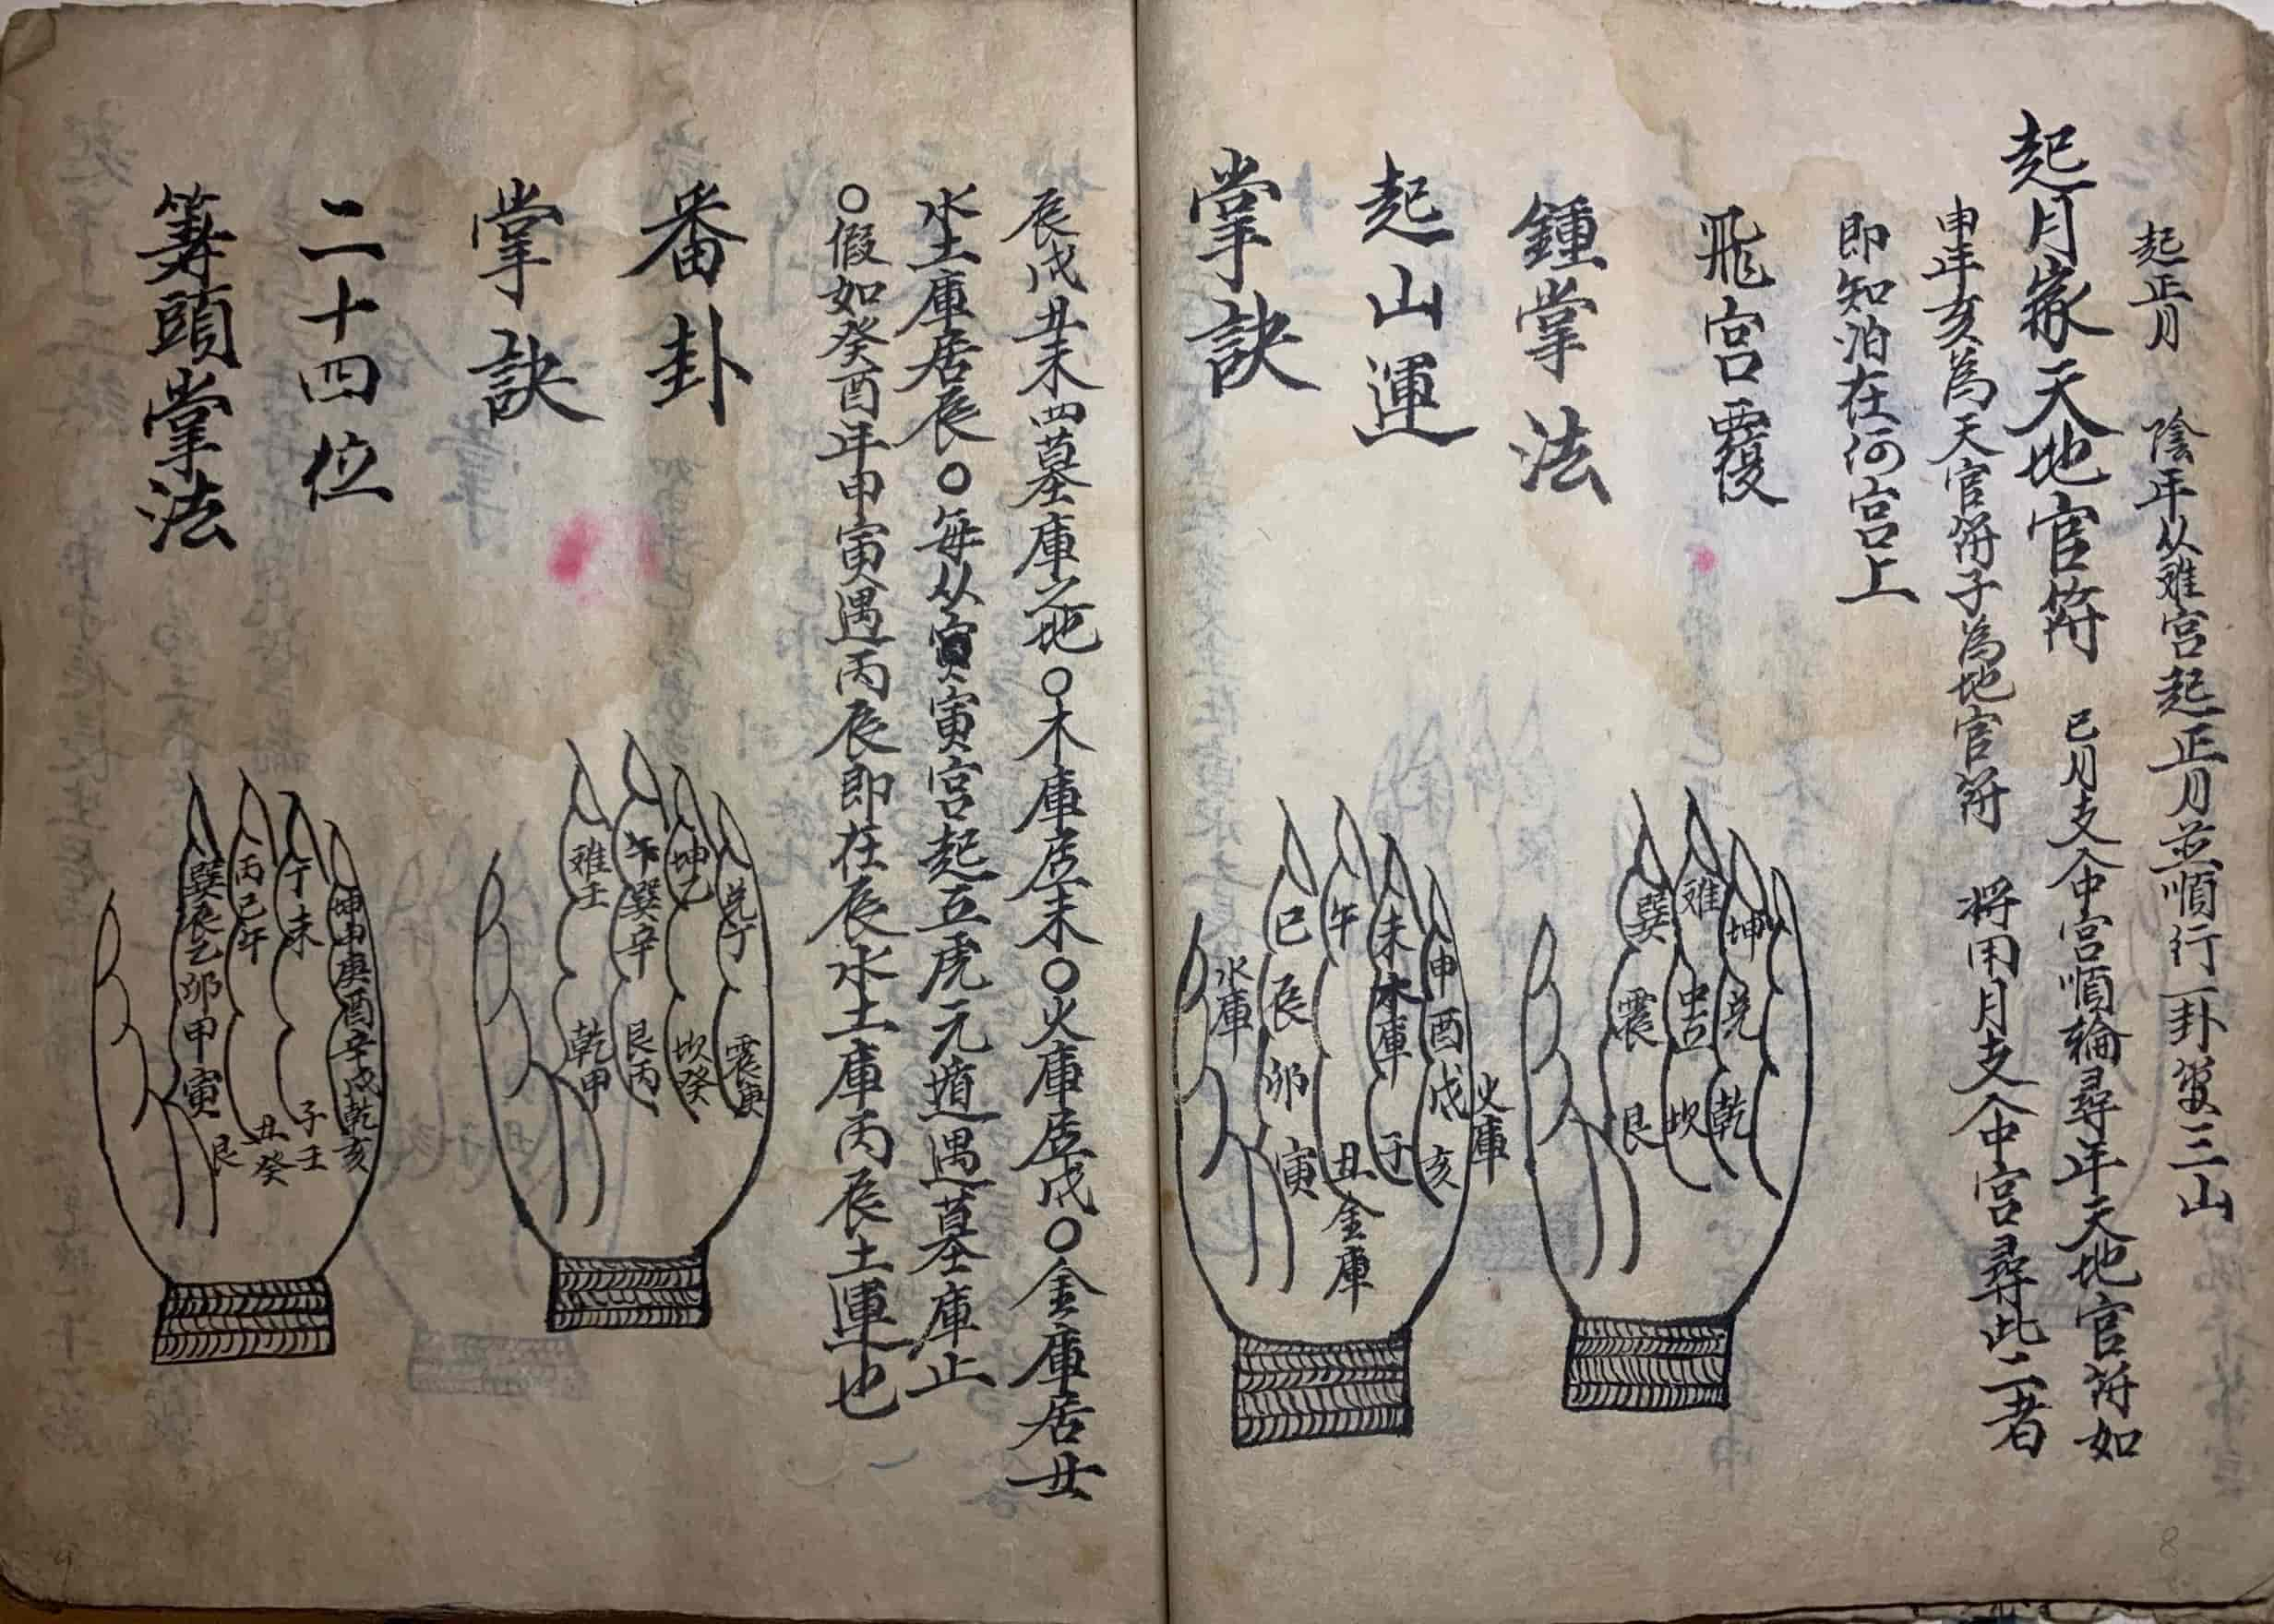 起正月　陰年从难宮起正月並順行一卦管三山
起月家天地官符　巳月支入中宮順輪尋年天地官符如
申年亥為天官符子為地官符　将用月支入中宮尋此二者
即知泊在何宮上
飛宮覆
鍾掌法
巽　难　坤
震　中宫　兑
艮　坎　乾
起山運
掌訣
巳　午　未　申
辰　酉
卯　戌
寅　丑　子　亥
水庫　木庫　火庫　金庫
辰戌丑未四墓庫之地○木庫居未○火庫居戌○金庫居丑
水土庫居辰○每从寅寅宮起五虎元遁遇墓庫止
○假如癸酉年甲寅遇丙辰即在辰水土庫丙辰土運也
番卦
掌訣
难壬　午巽辛　坤乙　兑丁
乾甲　艮丙　坎癸　震庚
二十四位
筭頭掌法
巽辰乙卯甲寅
丙巳午
丁未
坤申庚酉辛戌乾亥
艮　丑癸　子壬